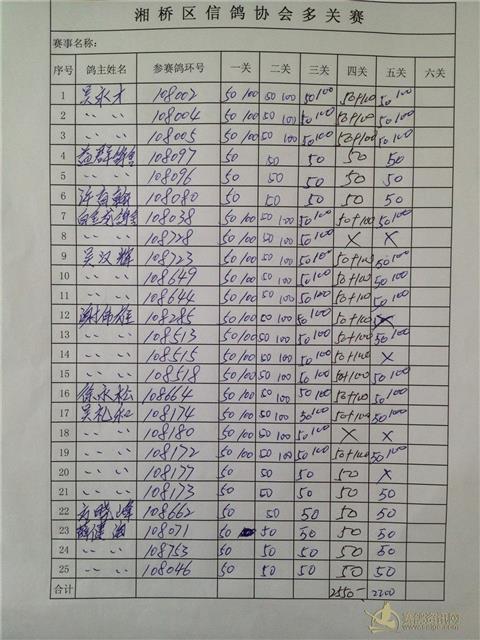 湘桥区信鸽协会多关赛
赛事名称：
序号 鸽主姓名 参赛鸽环号 一关 二关 三关 四关 五关 六关
1 吴永才 108002 50 100 50 100 50 100 50+100 50 100
2 〃 〃 108004 50 100 50 100 50 100 50+100 50 100
3 〃 〃 108005 50 100 50 100 50 100 50+100 50 100
4 益群鸽舍 108097 50 50 50 50 50
5 〃 〃 108096 50 50 50 50 50
6 许 108080 50 50 50 50 50
7 108038 50 100 50 100 50 100 50+100 50 100
8 〃 〃 108728 50 100 50 100 50 100 × ×
9 吴汉辉 108723 50 100 50 100 50 100 50+100 50 100
10 〃 〃 108649 50 100 50 100 50 100 50+100 50 100
11 〃 〃 108644 50 100 50 100 50 100 50+100 50 100
12 谢伟雄 108285 50 100 50 100 50 100 50+100
13 〃 〃 108513 50 100 50 100 50 100 50+100 50 100
14 〃 〃 108515 50 100 50 100 50 100 50+100 ×
15 〃 〃 108518 50 100 50 100 50 100 50+100 50 100
16 徐永松 108664 50 100 50 100 50 100 50+100 50 100
17 吴礼 108174 50 100 50 100 50 100 50+100 50 100
18 〃 〃 108180 50 100 50 100 50 100 × ×
19 〃 〃 108172 50 100 50 100 50 100 50+100 50 100
20 〃 〃 108177 50 50 50 50 ×
21 〃 〃 108173 50 50 50 50 50
22 晓峰 108662 50 50 50 50 50
23 108071 50 50 50 50 50
24 〃 〃 108753 50 50 50 50 50
25 〃 〃 108046 50 50 50 50 50
合计 2550- 2200